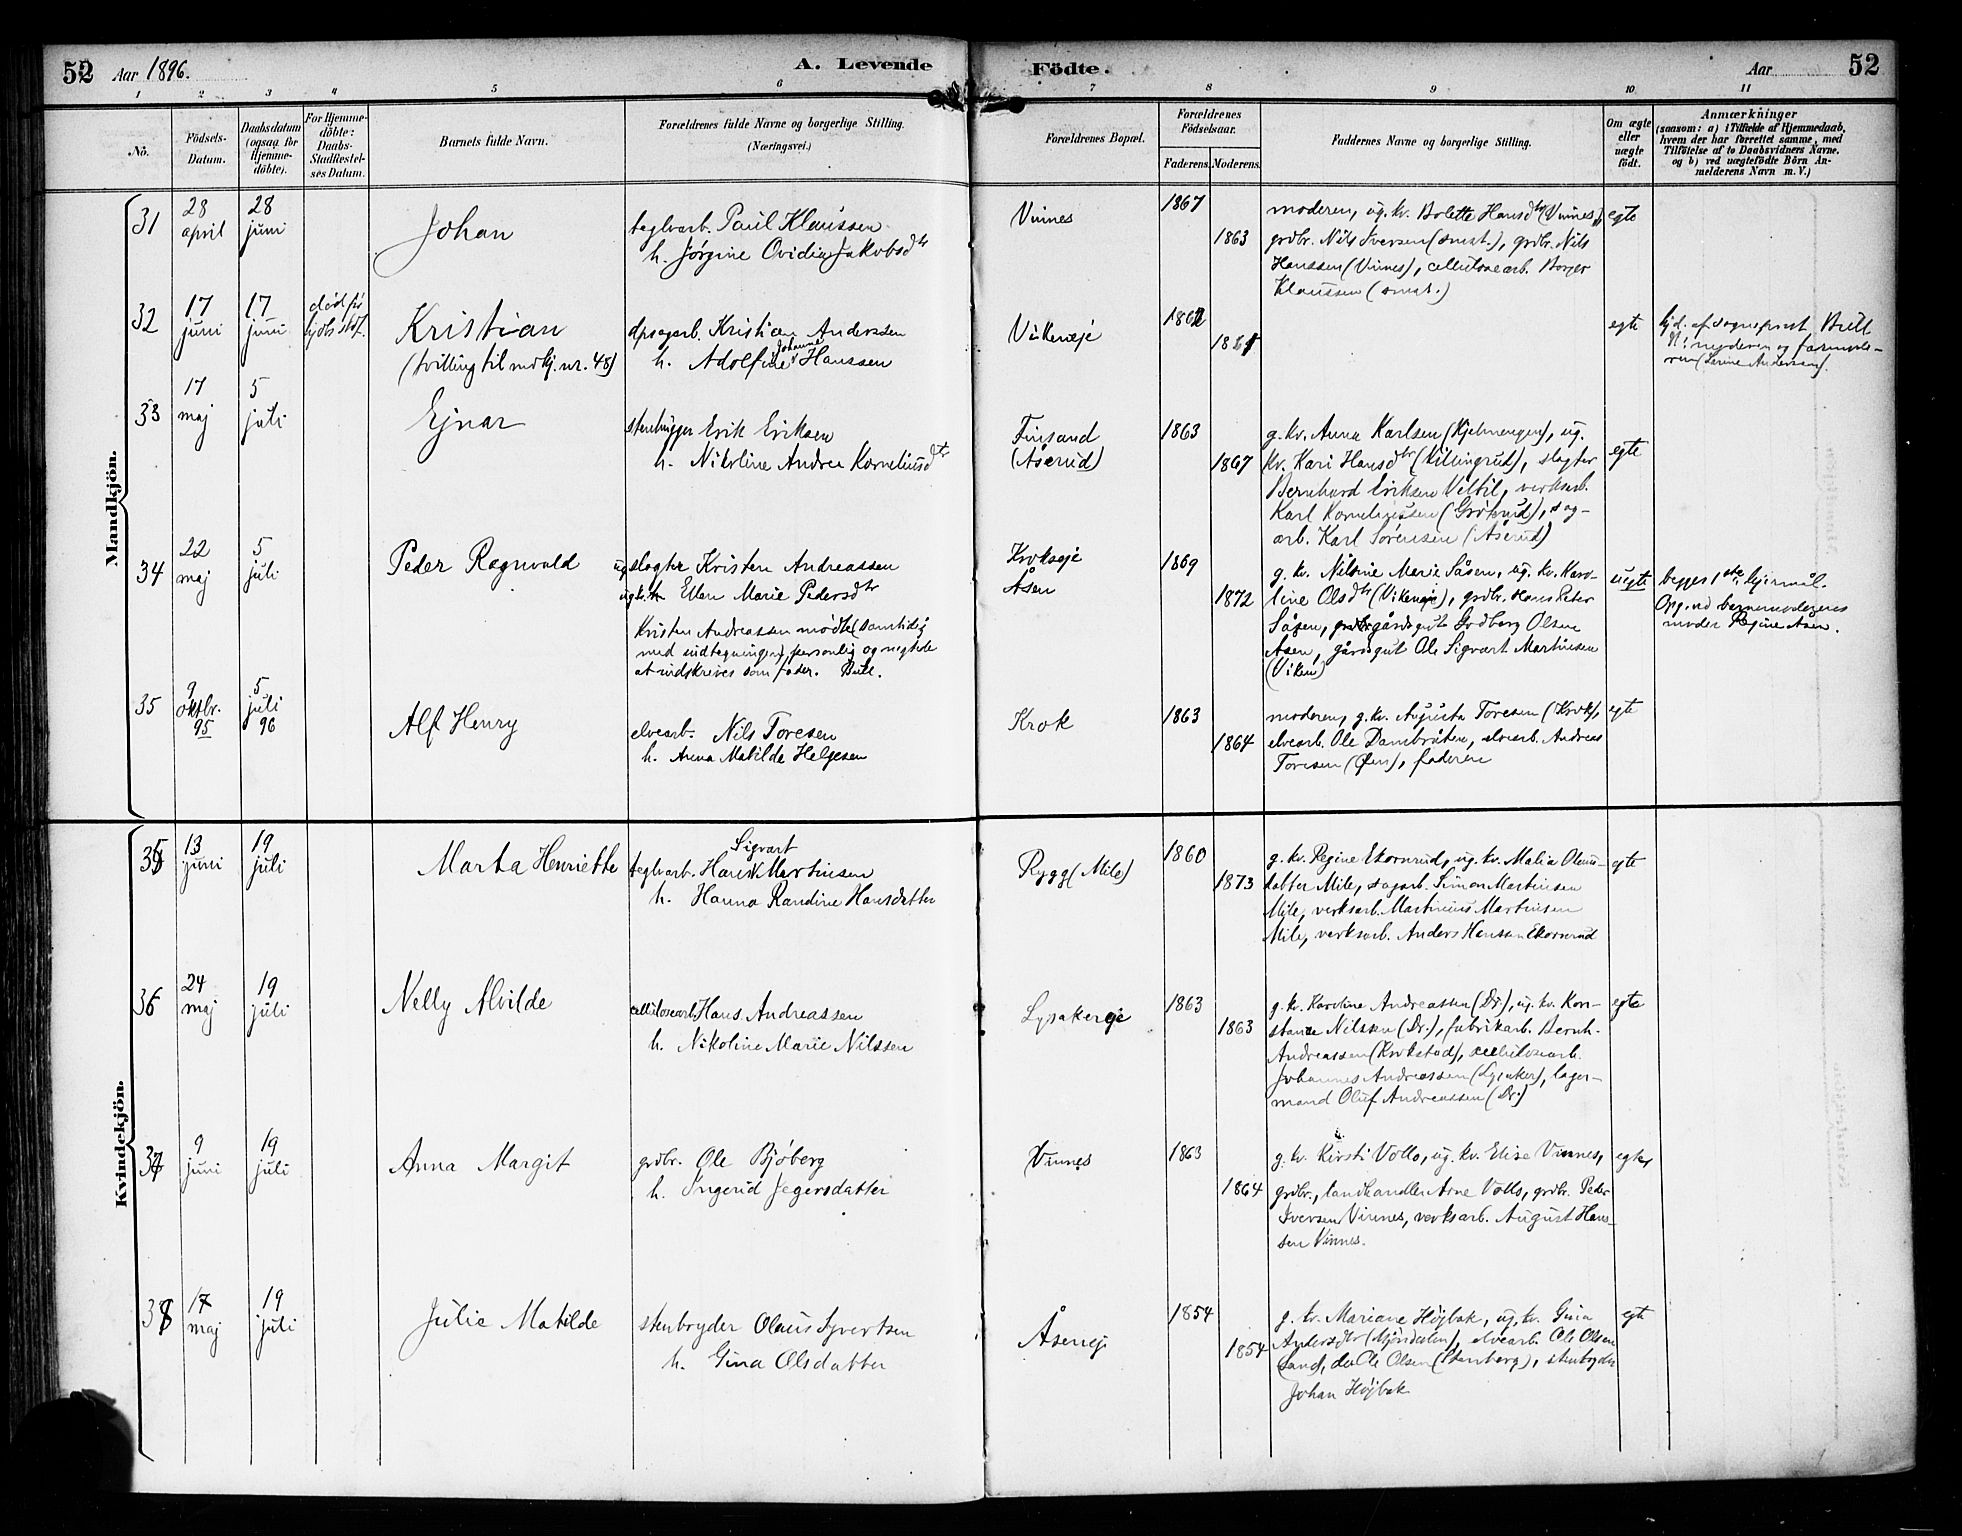 52 Aar 1896. A. Levende
Födte. Aar 52
1 2 3 4 5 6 7 8 9 10 11
No.
Födsels-Datum.
Daabsdatum (ogsaa for Hjemme-döbte).
For Hjemme-döbte: Daabs-Stadfæstel-ses Datum.
Barnets fulde Navn.
Forældrenes fulde Navne og borgerlige Stilling.
(Næringsvei.)
Forældrenes Bopæl.
Forældrenes Födselsaar.
Faderens. Moderens.
Faddernes Navne og borgerlige Stilling.
Om ægte eller uægte födt.
Anmærkninger
(saasom: a) i Tilfælde af Hjemmedaab, hvem der har forrettet samme, med Tilföielse af to Daabsvidners Navne. og b) ved uægtefödte Börn An-melderens Navn m. V.)
Mandkjön.
31 28 april 28 juni Johan
teglvarb. Paul Klaussen
h. Jørgine Ovidia Jakobsdtr
Vinnes 1867 1863
moderen, ug. kv. Bolette Hansdtr (Vinnes),
grdbr. Nils Iversen (smst.), grdbr. Nils
Hanssen (Vinnes), cellulosearb. Borger
Klaussen (smst.)
egte
32 17 juni 17 juni død før hjdb. stdf.
Kristian
(tvilling til mdkj. nr. 48)
dpsagarb. Kristian Anderssen
h. Adolfine Johanne Hanssen
Vikeneje 1862 1861
egte
hjd. af sogneprest Bull
V: moderen og farmode-
ren (Lerine Anderssen).
33 17 maj 5 juli Ejnar
stenhugger Erik Eriksen
h. Nikoline Andrea Korneliusdtr
Finsand
(Åserud)
1863 1867
g. kv. Anna Karlsen (Hjelmengen), ug.
kv. Kari Hansdtr (Killingrud), slagter
Bernhard Eriksen Veltil, verksarb.
Karl Korneliussen (Grøterud), sag-
arb. Karl Sørensen (Åserud)
egte
34 22 maj 5 juli Peder Ragnvald
ug slagter Kristen Andreassen
ug. kv. Ellen Marie Pedersdtr
Kristen Andreassen mødte (samtidig
med indtegningen) personlig og negtede
at indskrives som fader. Bull.
Krokseje
Åsen
1869 1872
g. kv. Nilsine Marie Såsen, ug. kv. Karo-
line Olsdtr (Vikeneje), grdbr. Hans Peter
Såsen, gårdsgut Godberg Olsen
Åsen, gårdsgut Ole Sigvart Martinsen
(Viken)
uegte
begges 1ste lejermål.
Opg. ved barnemoderens
moder Regine Åsen.
35 9 oktbr. 95 5 juli 96 Alf Henry
elvearb. Nils Toresen
h. Anna Matilde Helgesen
Krok 1863 1864
moderen, g. kv. Augusta Toresen (Krok),
elvearb. Ole Dambråten, elvearb. Andreas
Toresen (Øen), faderen
egte
Kvindekjön.
35 13 juni 19 juli Marta Henriette
teglvarb. Hans Sigvart Martinsen
h. Hanna Randine Hansdatter
Rygg (Mile) 1860 1873
g. kv. Regine Ekornrud, ug. kv. Malia Olaus-
datter Mile, sagarb. Simon Martinsen
Mile, verksarb. Martinius Martinsen
Mile, verksarb. Anders Hanssen Ekornrud
egte
36 24 maj 19 juli Nelly Alvilde
cellulosearb. Hans Andreassen
h. Nikoline Marie Nilssen
Lysakereje 1863 1863
g. kv. Karoline Andreassen (Dr.), ug. kv. Kon-
stanze Nilssen (Dr.), fabrikarb. Bernh.
Andreassen (Krokstad), cellulosearb.
Johannes Andreassen (Lysaker), lager-
mand Oluf Andreassen (Dr.)
egte
37 9 juni 19 juli Anna Margit
grdbr. Ole Bjøberg
h. Ingerid Jegersdatter
Vinnes 1863 1864
g. kv. Kirsti Vollo, ug. kv. Elise Vinnes,
grdbr., landhandler Arne Vollo, grdbr. Peder
Iversen Vinnes, verksarb. August Hans-
sen Vinnes.
egte
38 17 maj 19 juli Julie Matilde
stenbryder Olaus Syvertsen
h. Gina Olsdatter
Åseneje 1854 1854
g. kv. Mariane Højbak, ug. kv. Gina
Andersdtr (Mjøndalen), elvearb. Ole Olsen
Sand, do Ole Olsen (Stenberg), stenbryder
Johan Højbak
egte